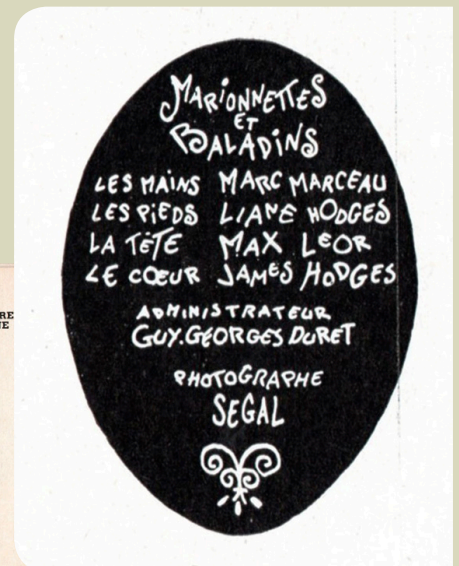 MARIONNETTES
ET
BALADINS
LES MAINS MARC MARCEAU
LES PIEDS LIANE HODGES
LA TÊTE MAX LEOR
LE CŒUR JAMES HODGES
ADMINISTRATEUR
GUY.GEORGES DURET
PHOTOGRAPHE
SEGAL
RE
NE